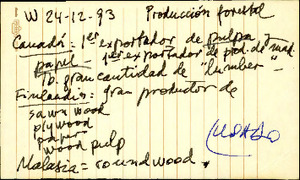 W 24-12-93 Producción forestal
Canadá: 1er exportador de pulpa y
papel - 1er exportador de prod. de mad.
To. gran cantidad de "lumber" -
Finlandia: gran productor de
sawn wood
plywood
paper
wood pulp
USADO
Malasia = roundwood.